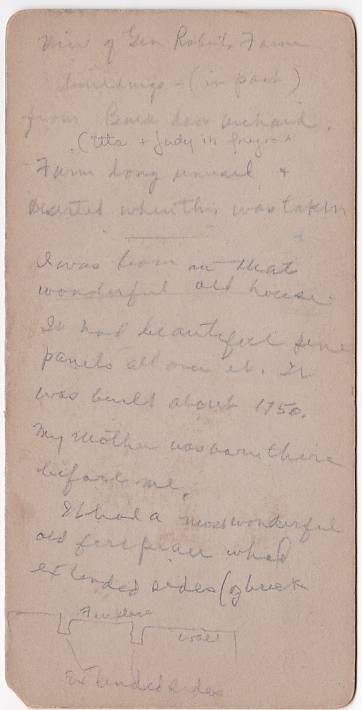 View of Gen Robert's Farm
buildings - (in part)
from Back door orchard.
(Etta + Judy in
Farm long unused +
deserted when this was taken
I was born in that
wonderful old house.
It had beautiful pine
panels all over it. It
was built about 1750.
My Mother was born there
before me.
It had a most wonderful
old fireplace which
extended sides (of brick
Fireplace
wall
Extended sides